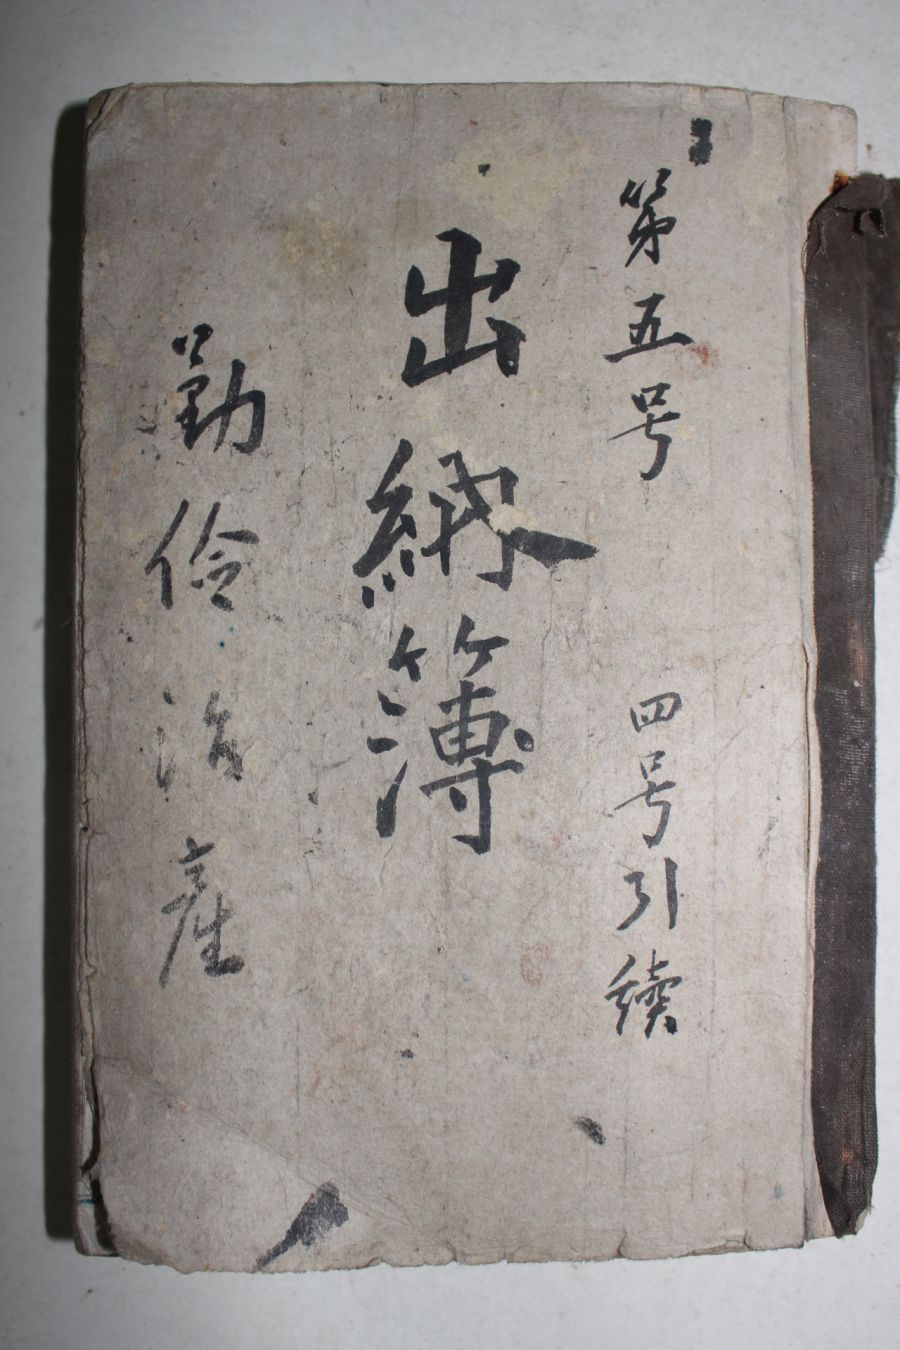 第五号 四号引続
出納簿
勤倹治産